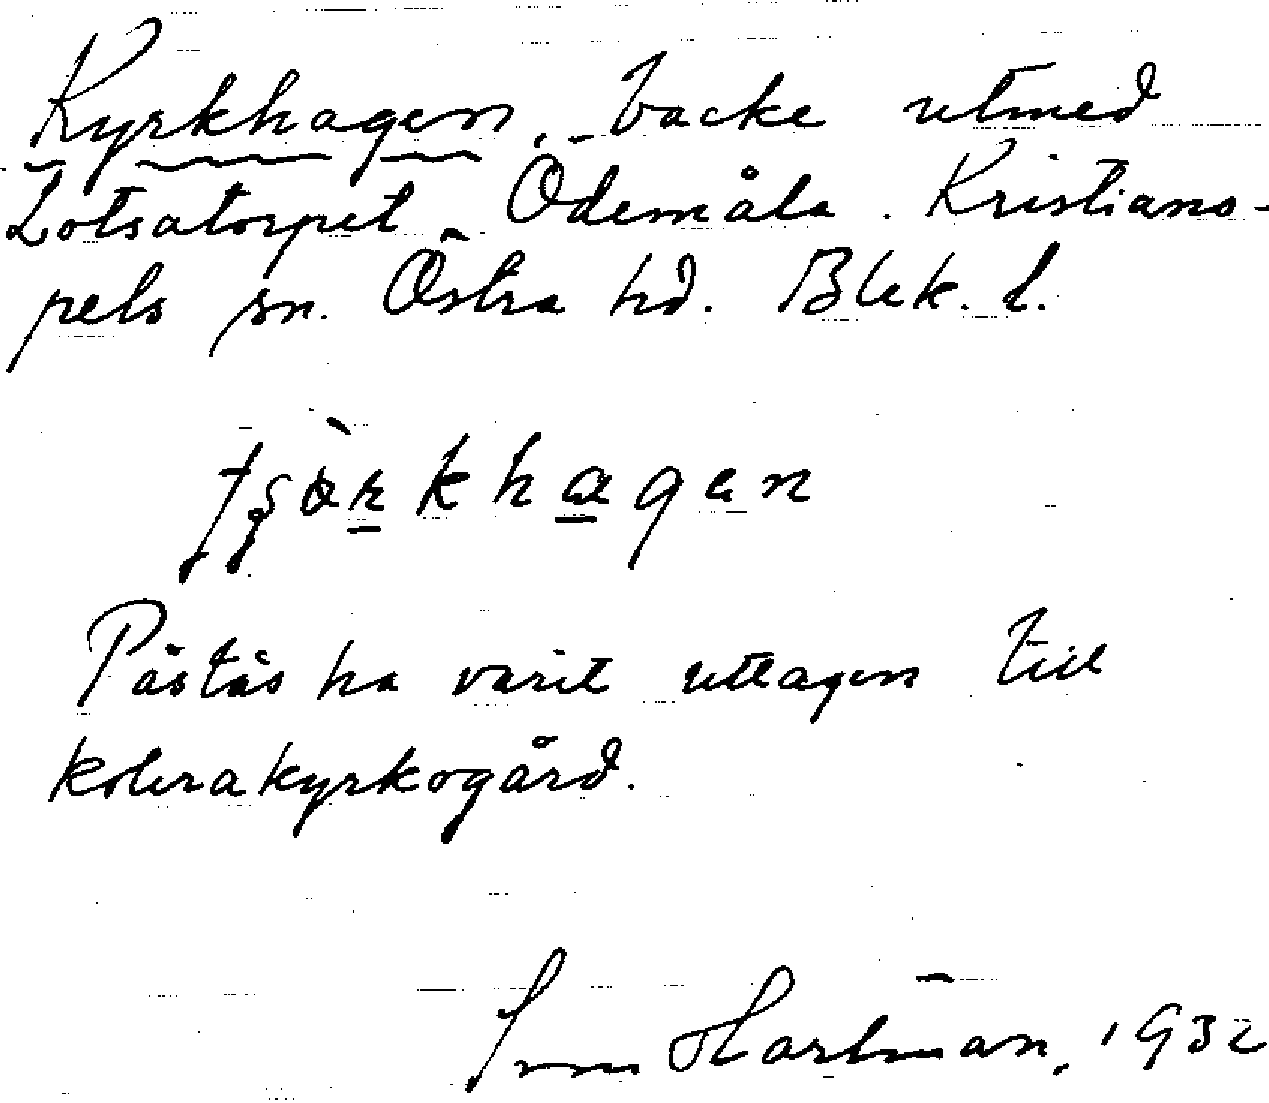 Kyrkhagen, backe utmed
Lotsatorpet Ödemåla. Kristiano-
pels sn. Östra hd. Blek. l.
Påstås ha varit uttagen till
kolerakyrkogård.
Hartman, 1932